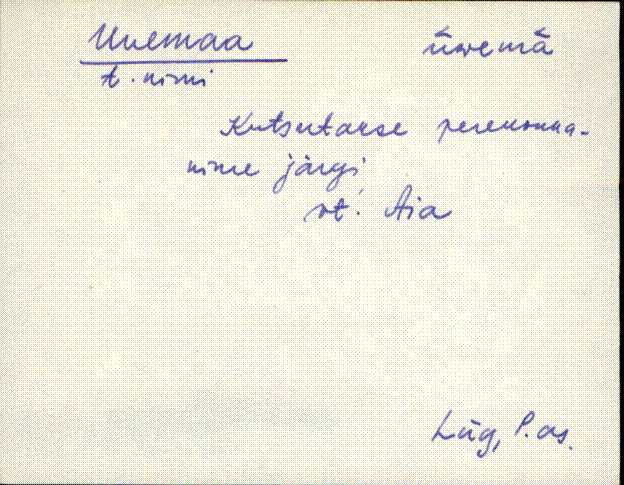 Uuemaa ūwemā
t. nimi
Kutsutakse perekonna-
nime järgi
vt. Aia
Lüg, P. as.